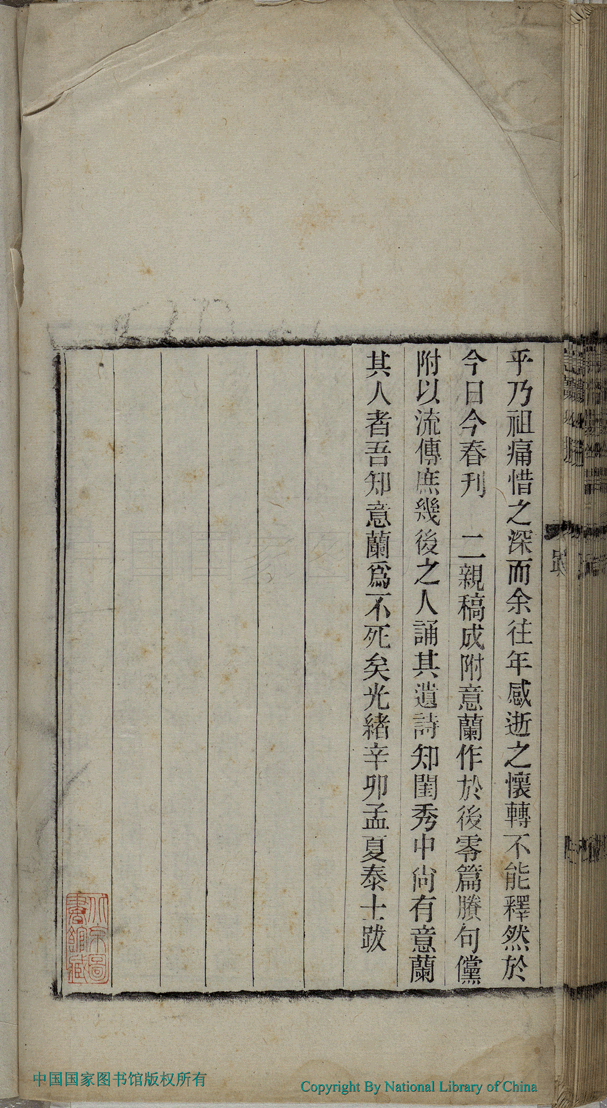 乎乃祖痛惜之深而余往年感逝之懷轉不能釋然於
今日今春刊　二親稿成附意蘭作於後零篇賸句儻
附以流傳庶幾後之人誦其遺詩知閨秀中尙有意蘭
其人者吾知意蘭爲不死矣光緒辛卯孟夏泰士跋
北京圖
書館藏
中国国家图书馆版权所有
Copyright By National Library of China